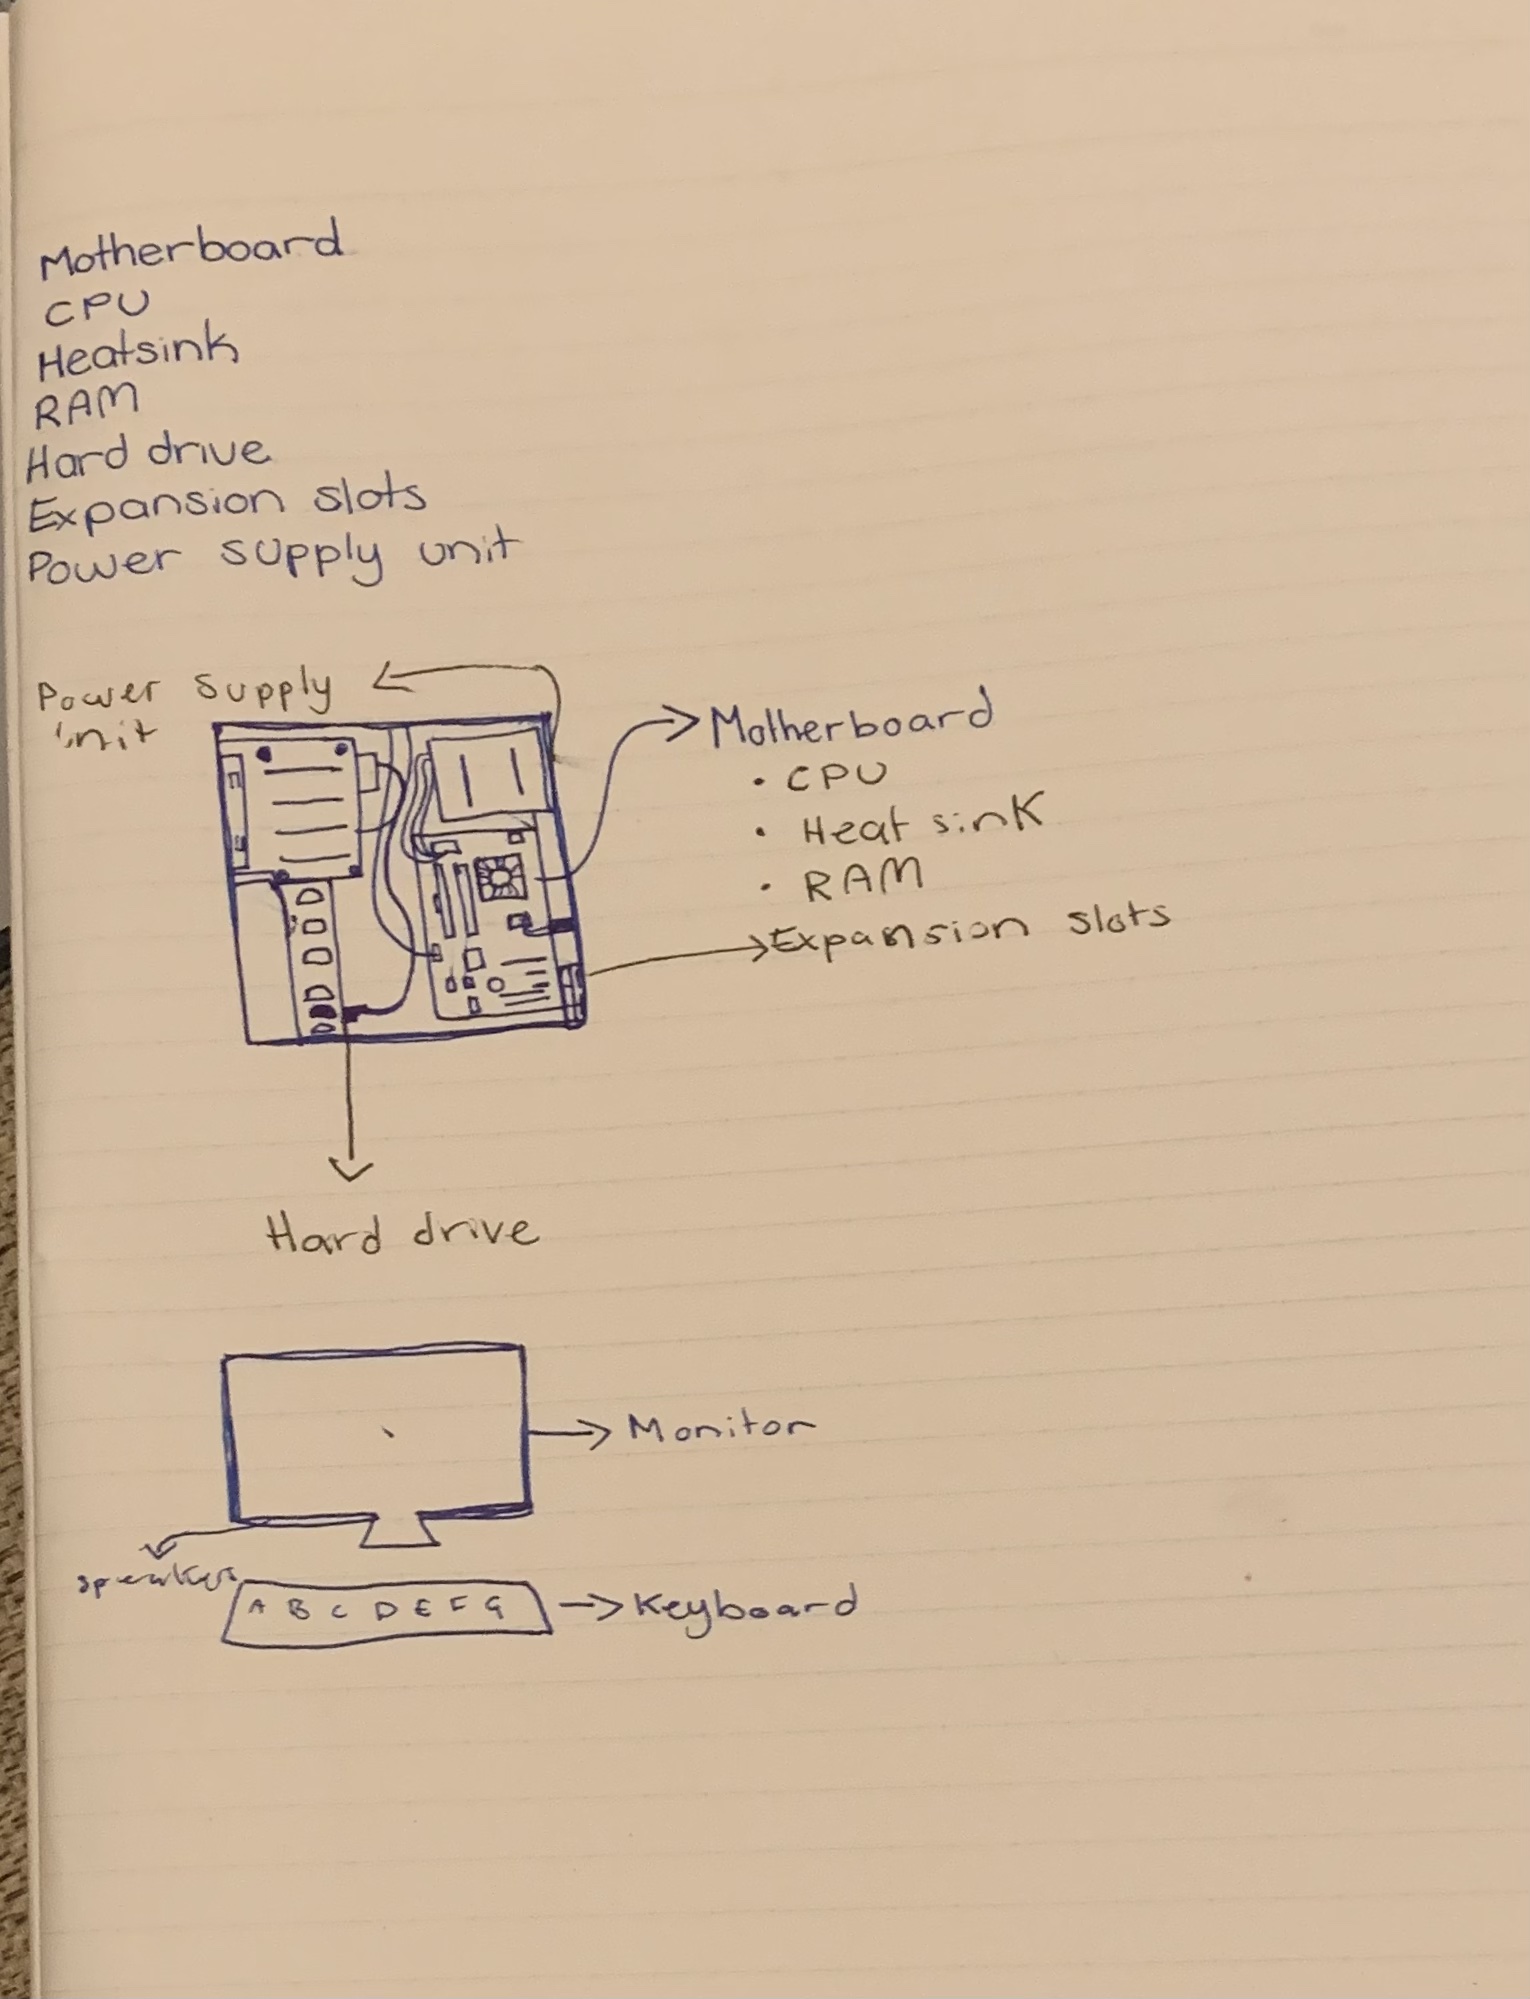 Motherboard
CPU
Heatsink
RAM
Hard drive
Expansion slots
Power supply unit
Power supply
unit
Motherboard
• CPU
• Heat sink
• RAM
Expansion slots
Hard drive
Monitor
speaker
A B C D E F G
Keyboard